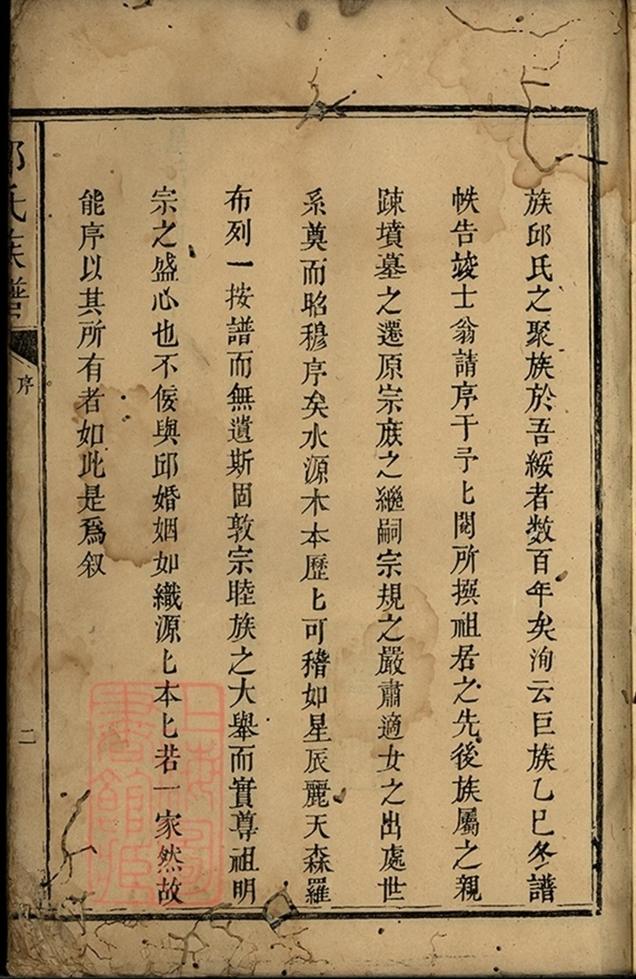 族邱氏之聚族於吾綏者数百年矣洵云巨族乙巳冬譜
帙告竣士翁請序于予匕閱所撰祖居之先後族屬之親
踈墳墓之遷原宗族之繼嗣宗規之嚴肅適女之出處世
系奠而昭穆序矣水源木本歷匕可稽如星辰麗天森羅
布列一按譜而無遺斯固敦宗睦族之大舉而實尊祖明
宗之盛心也不佞與邱婚姻如織源匕本匕若一家然故
能序以其所有者如此是爲叙
邱氏族譜
序
二
上海圖書館藏